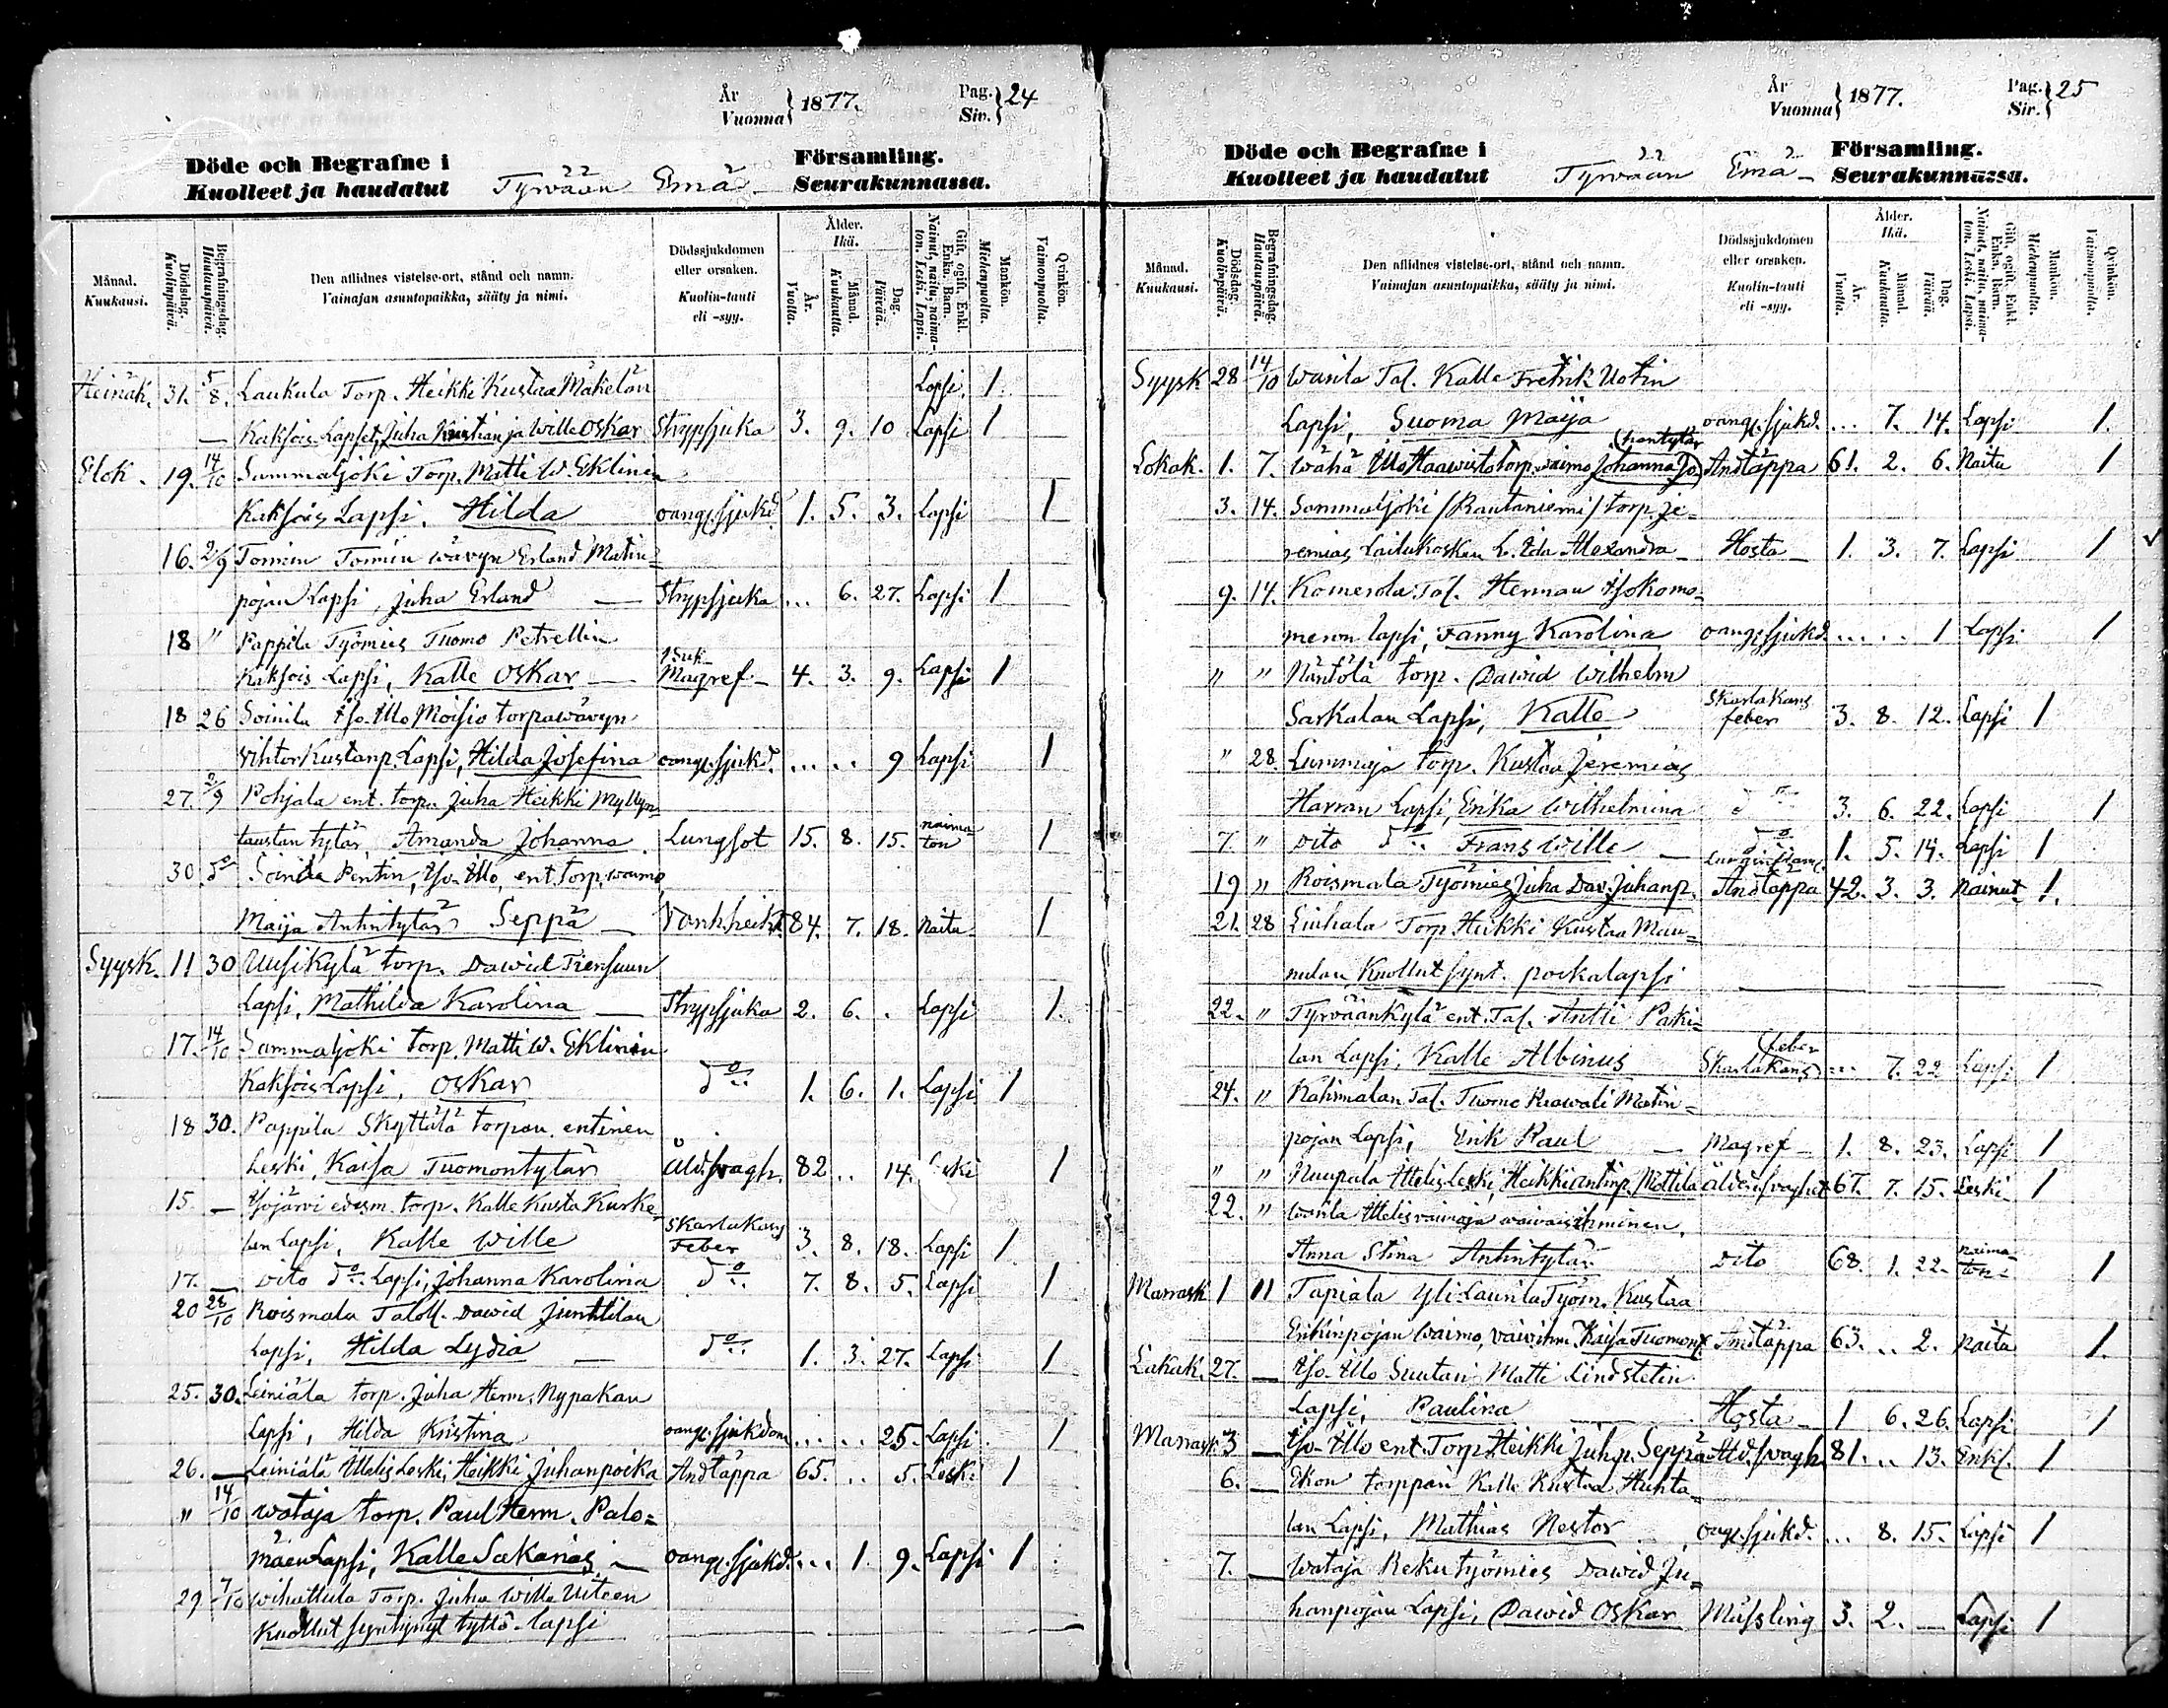 År
Vuonna } 1877.
Pag.
Siv. } 24
Döde och Begrafne i
Kuolleet ja haudatut
Tyrvään Emä-
Församling.
Seurakunnassa.
Månad.
Kuukausi.
Dödsdag.
Kuolinpäivä.
Begrafningsdag.
Hautauspäivä.
Den aflidnes vistelse-ort, stånd och namn.
Vainajan asuntopaikka, sääty ja nimi.
Dödssjukdomen
eller orsaken.
Kuolin-tauti
eli -syy.
Ålder.
Ikä.
År.
Vuotta.
Månad.
Kuukautta.
Dag.
Päivää.
Gift, ogift, Enkl.
Enka. Barn.
Nainut, naitu, naima-
ton. Leski. Lapsi.
Mankön.
Miehenpuolta.
Qvinkön.
Vaimonpuolta.
Heinäk. 31. 5/8. Laukula Torp. Heikki Kustaa Mäkelän Lapsi. 1.
— Kaksois Lapset, Juha Kristian ja Wille Oskar Strypsjuka 3. 9. 10 Lapsi 1
Elok. 19. 14/10 Sammaljoki Torp. Matti W. Eklinen
Kaksois Lapsi. Hilda oang. sjukd. 1. 5. 3. Lapsi 1
16. 2/9 Tomin wävyn Erland Matin-
pojan Lapsi, Juha Erland — Strypsjuka ... 6. 27. Lapsi 1
18 " Pappila Työmies Tuomo Petrellin
Kaksois Lapsi, Kalle Oskar — Magref — 4. 3. 9. Lapsi 1
18 26 Soinila Iso-Ullo Moisio torpawävyn
Vihtor Kustanp. Lapsi, Hilda Josefina oang. sjukd. ... .. 9 Lapsi 1
27. 2/9 Pohjala ent. torp. Juha Heikki Myllyn-
taustan tytär, Amanda Johanna. Lungsot 15. 8. 15. naima-
ton 1
30. do Soinila Pentin, Iso-Ullo, ent torp. waimo
Maija Antintytär Seppä — Vanh.heik. 84. 7. 18. Naitu 1
Syysk. 11 30 Uusikylä torp. Dawid Tiensuun
Lapsi, Mathilda Karolina — Strypsjuka 2. 6. . Lapsi 1.
17. 14/10 Sammaljoki torp. Matti W. Eklinin
Kaksois Lapsi, Oskar do 1. 6. 1. Lapsi 1
18 30. Pappila Skyttälä torpan entinen
Leski, Kaisa Tuomontytär Åld. svagh. 82 .. 14. Leski 1
15 — Isojärvi edesm. torp. Kalle Kusta Kurke-
lan Lapsi, Kalle Wille Skarlakans
Feber 3. 8. 18. Lapsi 1
17. — Dito do Lapsi, Johanna Karolina do 7. 8. 5. Lapsi 1
20 28/10 Roismala Taloll. Dawid Junttilan
Lapsi, Hilda Lydia — do 1. 3. 27. Lapsi 1
25. 30. Leiniälä torp. Juha Herm. Nypakan
Lapsi, Hilda Kristina oang. sjukdom ... .. 25. Lapsi 1
26. — Leiniälä Itelis Leski, Heikki Juhanpoika Andtäppa 65. .. 5. Leski 1
" 14/10 Wataja torp. Paul Herm. Palo-
mäen Lapsi, Kalle Sakarias — oang. sjukd. ... 1. 9. Lapsi 1
29 7/10 Wihattula Torp. Juha Wille Uiteen
Kuollut syntynyt tyttö-lapsi
År
Vuonna } 1877.
Pag.
Siv. } 25
Döde och Begrafne i
Kuolleet ja haudatut
Tyrvään Emä-
Församling.
Seurakunnassa.
Månad.
Kuukausi.
Dödsdag.
Kuolinpäivä.
Begrafningsdag.
Hautauspäivä.
Den aflidnes vistelse-ort, stånd och namn.
Vainajan asuntopaikka, sääty ja nimi.
Dödssjukdomen
eller orsaken.
Kuolin-tauti
eli -syy.
Ålder.
Ikä.
År.
Vuotta.
Månad.
Kuukautta.
Dag.
Päivää.
Gift, ogift, Enkl.
Enka. Barn.
Nainut, naitu, naima-
ton. Leski. Lapsi.
Mankön.
Miehenpuolta.
Qvinkön.
Vaimonpuolta.
Syysk 28 14/10 Wanla Tal. Kalle Fredrik Uotin
Lapsi, Suoma Maija oang. sjukd. ... 7. 14. Lapsi 1.
Lokak. 1. 7. Wähä Ullo Haawisto torp. waimo Johanna Jo. (hantytär Andtäppa 61. 2. 6. Naitu 1
3. 14. Sammaljoki /Rautaniemi/ torp. Je-
remias Lailukosken L. Ida Alexandra — Hosta — 1. 3. 7. Lapsi 1
9. 14. Komerola Tal. Herman Isokomo-
meron lapsi, Fanny Karolina oang. sjukd. ... .. 1 Lapsi 1
" " Näntölä torp. Dawid Wilhelm
Sarkalan Lapsi, Kalle Skarlakans
feber 3. 8. 12. Lapsi 1
" 28. Liummaja torp. Kustaa Jeremias
Harran Lapsi, Erika Wilhelmina do 3. 6. 22. Lapsi 1
7. " Dito do Frans Wille — do 1. 5. 14. Lapsi 1
19 " Roismala Työmies Juha Dav. Juhanp. Lunginflam.
Andtäppa 42. 3. 3. Nainut 1.
21. 28 Liuhala Torp. Heikki Kustaa Man-
nilan, Kuollut synt. poikalapsi
22. " Tyrväänkylä ent. Tal. Antti Paki-
lan Lapsi, Kalle Albinus Skarlakans (feber ... 7. 22 Lapsi 1
24. " Kahimalan Tal. Tuomo Matin-
pojan Lapsi, Erik Paul — Magref — 1. 8. 23. Lapsi 1
" " Nuupala Itelis Leski, Heikki Antinp. Mottila ålderssvaghet 67. 7. 15. Leski 1
22. " Wanla Itellisvainaja waivaisihminen,
Anna Stina Antintytär Dito 68. 1. 22. naima-
ton 1
Marrask 1 11 Tapiala Yli-Launila Työm. Kustaa
Erkinpojan Waimo, vaiwihm. Kaisa Tuomont. Andtäppa 63. .. 2. Naitu 1.
Lokak. 27. — Iso-Ullo Suutari Matti Lindstetin
Lapsi, Paulina Hosta — 1 6. 26. Lapsi 1
Marrask 3 — Iso-Ullo ent. Torp. Heikki Juh.p. Seppä Åld. svagh. 81. .. 13. Enkl. 1
6. — Ekon torppari Kalle Kustaa Huhta-
lan Lapsi, Mathias Nestor oang. sjukd. ... 8. 15. Lapsi 1
7. — Wataja Reku työmies Dawid Ju-
hanpojan Lapsi, Dawid Oskar Mässling 3. 2. — Lapsi 1